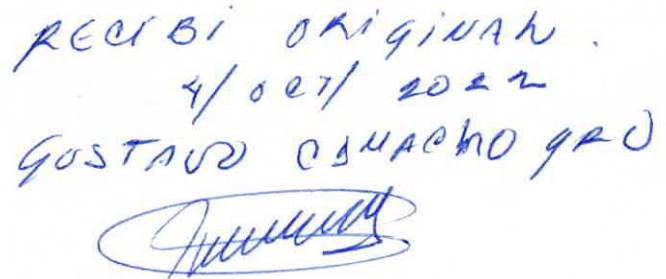 RECIBI ORIGINAL.
4/OCT/2022
GUSTAVO CAMACHO